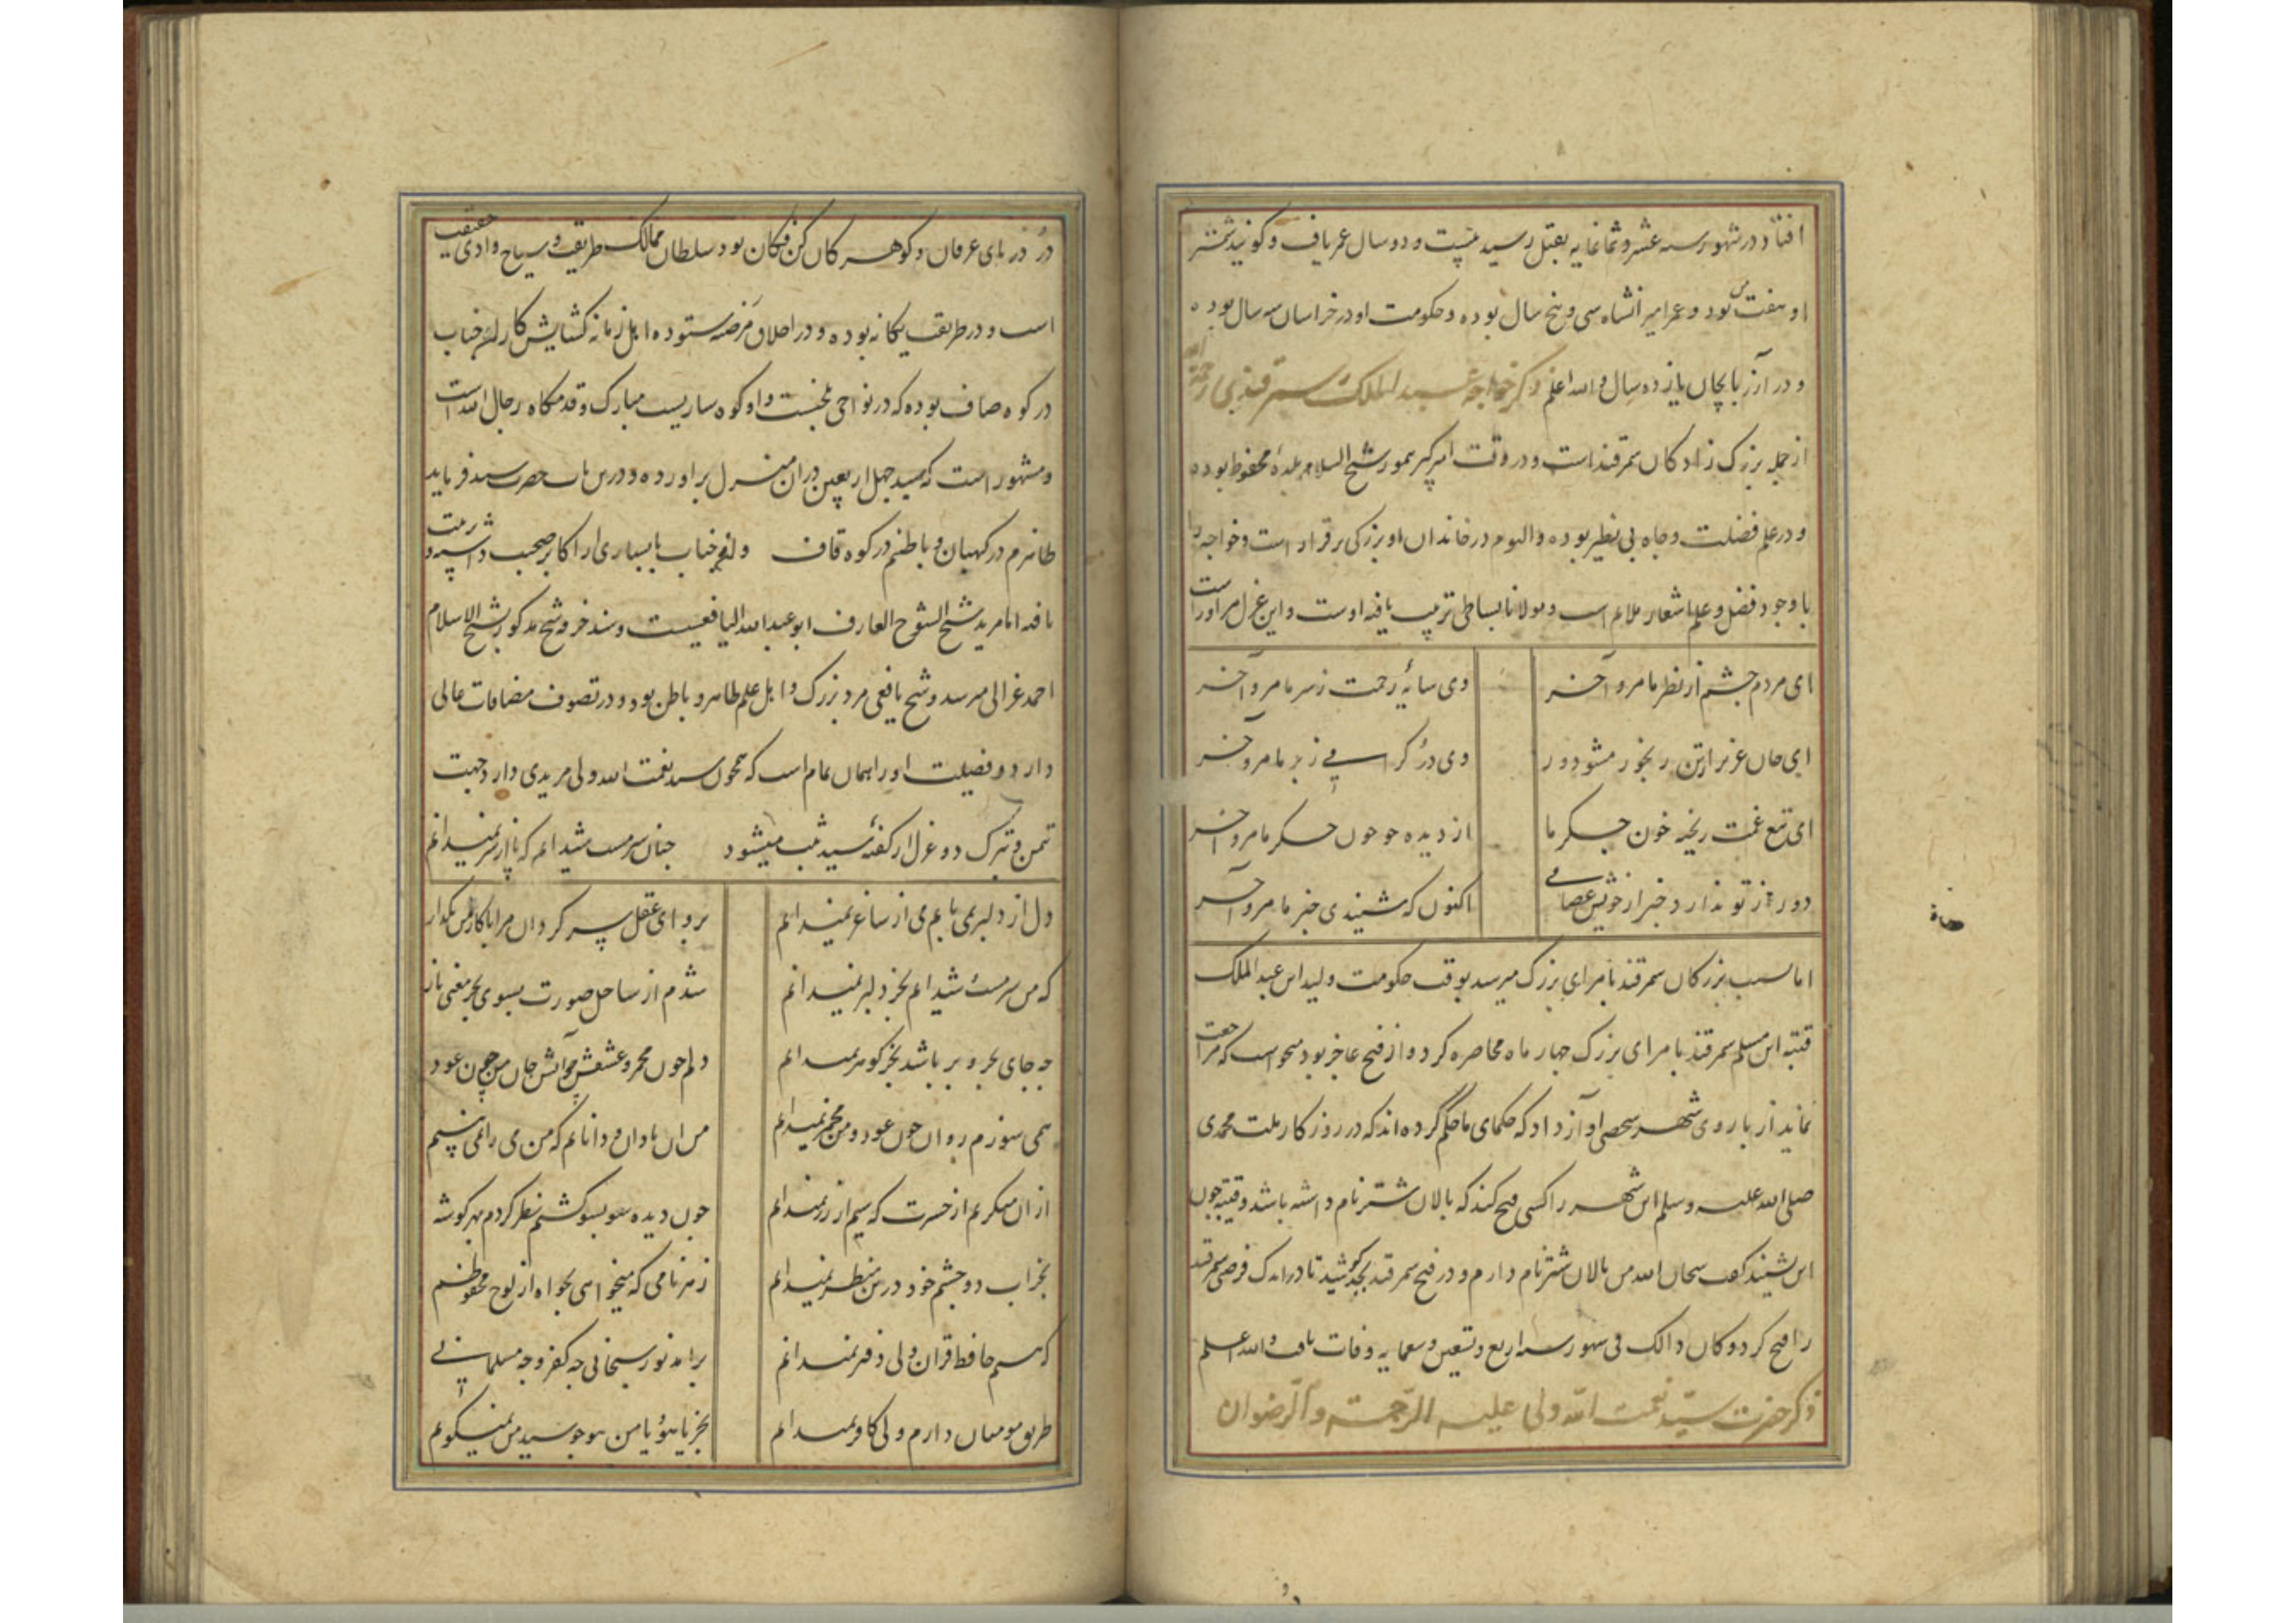 افتاد در شهور سنه عشر و ثمانمایه بقتل رسید بیست و دو سال عمر یافت و کویند شمشیر
او هفت من بود و عمر امیرانشاه سی و پنج سال بوده و حکومت او در خراسان سه سال بوده
و در آذربایجان یازده سال والله اعلم ذکر خواجه عبدالملک سمرقندی رحمة الله
از جمله بزرک زادکان سمرقند است و در وقت امیر کبیر تیمور شیخ السلام بلدهٔ محفوظ بوده
و در علم فضیلت و جاه بی نظیر بوده و الیوم در خاندان او بزرکی برقرار است و خواجه را
با وجود فضل و علم اشعار ملایم است و مولانا بساطی تربیت یافته اوست و این غزل مر اوراست
ای مردم چشم از نظر ما مرو آخر وی سایهٔ رحمت ز سر ما مرو آخر
ای جان عزیز از تن رنجور مشو دور وی در کرامی ز بر ما مرو آخر
ای تیغ غمت ریخته خون جکر ما از دیده چو خون جکر ما مرو آخر
دور از تو ندارد خبر از خویش عصامی اکنون که شنیدی خبر ما مرو آخر
اما نسب بزرکان سمرقند بامرای بزرک میرسد بوقت حکومت ولید ابن عبدالملک
قتیبه ابن مسلم سمرقند با مرای بزرک چهار ماه محاصره کرد و از فتح عاجز بود میخواست که مراجعت
نماید از باروی شهر شخصی آواز داد که حکمای ما حکم کرده‌اند که در روزکار ملت محمدی
صلی الله علیه و سلم این شهر را کسی فتح کند که پالان شتر نام داشته باشد و قتیبه چون
این بشنید کفت سبحان الله من پالان شتر نام دارم و در فتح سمرقند بجد کوشید تا در اندک فرصتی سمرقند
را فتح کرد و کان ذالک فی شهور سنه اربع و تسعین و سبعمایه وفات یافت والله اعلم
ذکر حضرت سید نعمت الله ولی علیه الرحمته والرضوان
در دریای عرفان و کوهر کان کن فکان بود سلطان ممالک طریقت و سیاح وادی حقیقت
است و در طریقت یکانه بوده و در اخلاق مرضیه ستوده اهل زمانه کشایش کار این جناب
در کوه صاف بوده که در نواحی بلخست و او کوهساریست مبارک و قدمکاه رجال الله است
و مشهور است که سید چهل اربعین دران منزل براورده و درین باب حضرت سید فرماید
ظاهرم در کهستان و باطنم در کوه قاف و این جناب با بسیاری از اکابر صحبت داشته و تربیت
یافته اما مرید شیخ الشیوخ العارف ابو عبدالله الیافعیست و سند خرقه شیخ مذکور بشیخ الاسلام
احمد غزالی میرسد و شیخ یافعی مرد بزرک و اهل علم ظاهر و باطن بود و در تصوف مصنفات عالی
دارد و فضیلت او را همان تمام است که همچون سید نعمت الله ولی مریدی دارد جهت
تیمن و تبرک دو غزل از کفتهٔ سید ثبت میشود چنان سرمست شیدایم که پا از سر نمیدانم
دل از دلبر نمی یابم می از ساغر نمیدانم برو ای عقل سرکردان مرا با کار من بکذار
که من سرمست شیدایم بجز دلبر نمیدانم شدم از ساحل صورت بسوی بحر معنی باز
چه جای بحر و بر باشد بجز کوهر نمیدانم دلم چون مجمر و عشقش چو آتش جان من چون عود
همی سوزم روان چون عود و من مجمر نمیدانم من ان نادان و دانایم که من می را نمی بینم
ازان میکریم از حسرت که سیم از زر نمیدانم چون دیده سو بسو کشتم نظر کردم بهر کوشه
بجز آب دو چشم خود درین منظر نمیدانم ز هر نامی که میخواهی بخواه از لوح محفوظم
که هستم حافظ قران ولی دفتر نمیدانم برامد نور سبحانی چه کفر و چه مسلمانی
طریق مومنان دارم ولی کافر نمیدانم بجز یا هو و یا من هو چو سید من نمیکویم